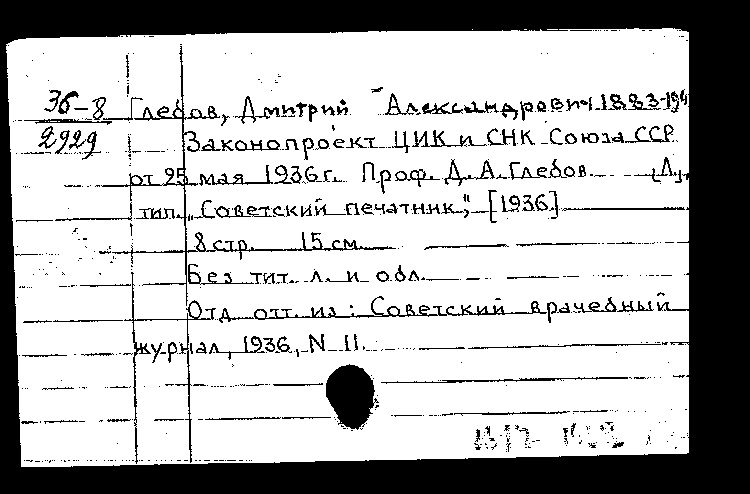 36-8 Глебов, Дмитрий Александрович 1883-194
2929 Законопроект ЦИК и СНК Союза ССР
от 25 мая 1936 г. Проф. Д. А. Глебов. [Л.],
тип. „Советский печатник“, [1936]
8 стр. 15 см.
Без тит. л. и обл.
Отд. отт. из: Советский врачебный
журнал, 1936, N 11.